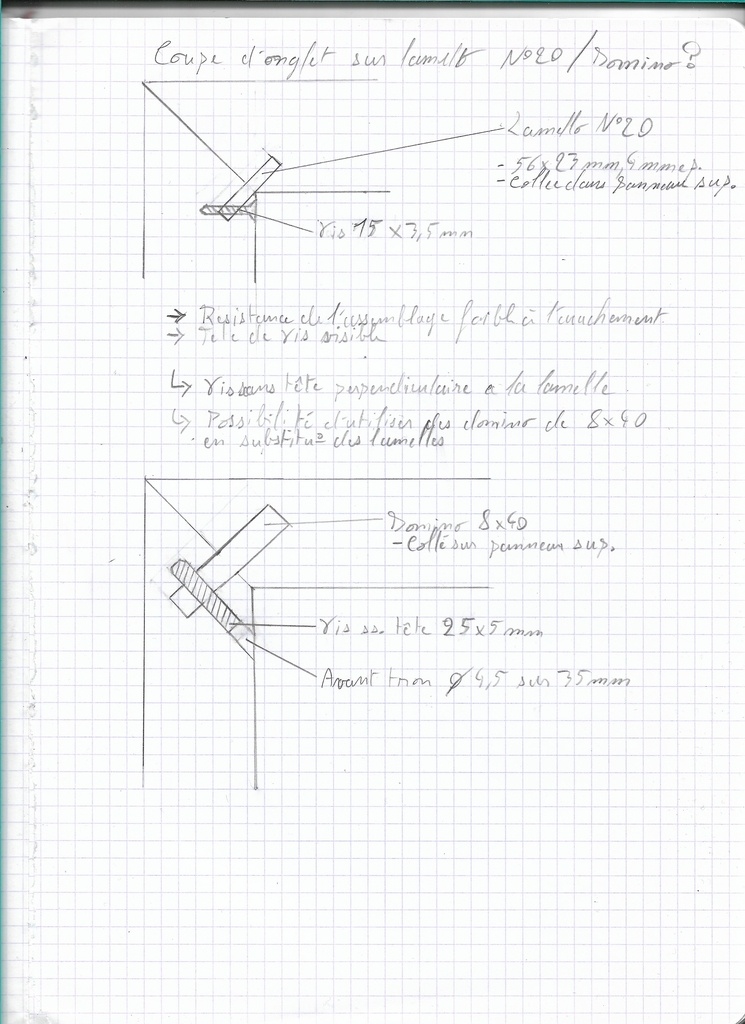 Coupe d'onglet sur lamello N°20 / Domino ?
Lamello N°20
- 56 x 23 mm, 4 mm ep.
- Collée dans panneau sup.
Vis 15 x 3,5 mm
→ Résistance de l'assemblage faible à l'arrachement
→ Tête de vis visible
↳ Vis sans tête perpendiculaire a la lamelle
↳ Possibilité d'utiliser des domino de 8x40
en substitu° des lamelles
Domino 8x40
- Collé sur panneau sup.
Vis ss. tête 25x5 mm
Avant trou Ø 4,5 sur 35 mm